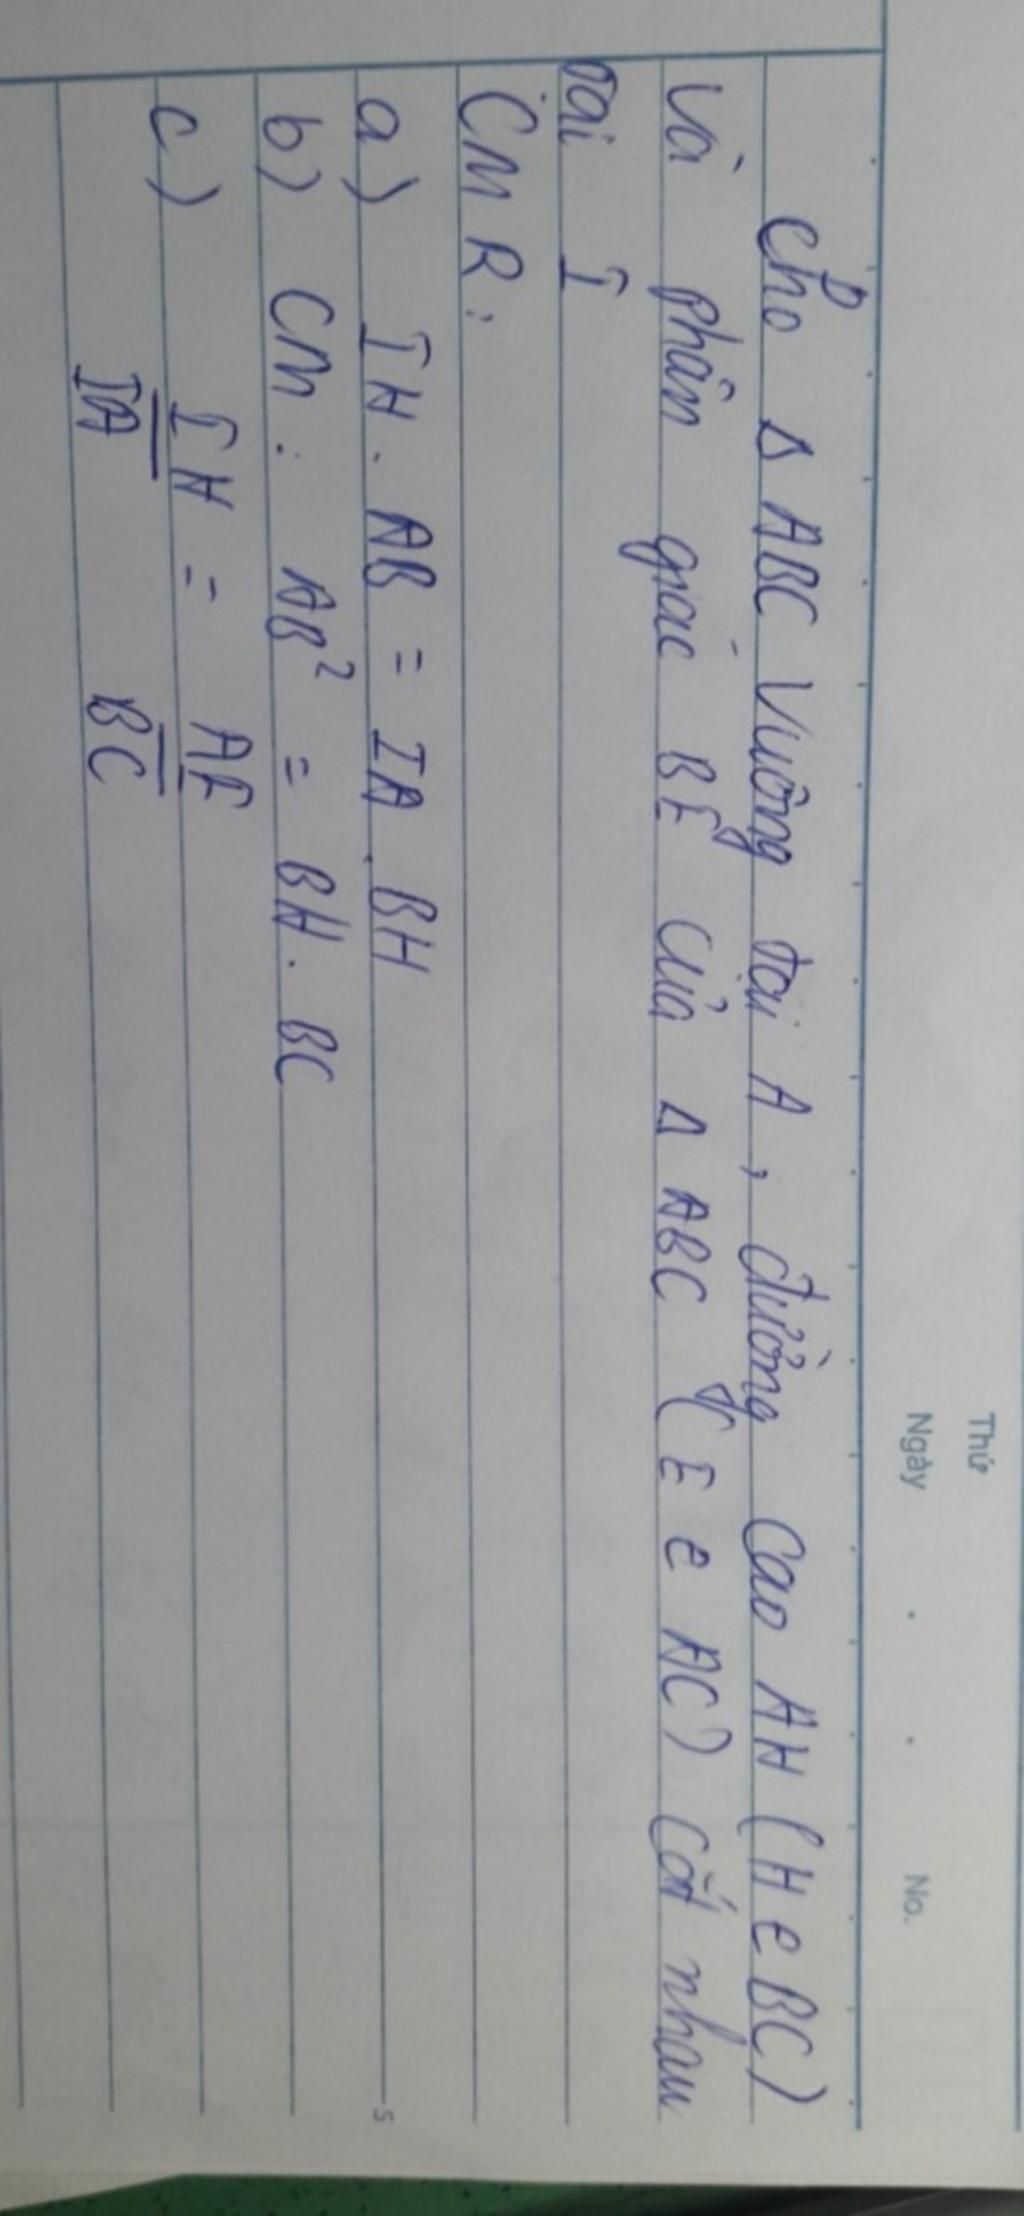 Thứ
Ngày . . No.
Cho Δ ABC vuông tại A, đường cao AH (H e BC)
và phân giác BE của Δ ABC (E e AC) cắt nhau
tại I
CMR:
a) IH. AB = IA. BH
b) CM: AB² = BH. BC
c) IH = AE
IA BC
5